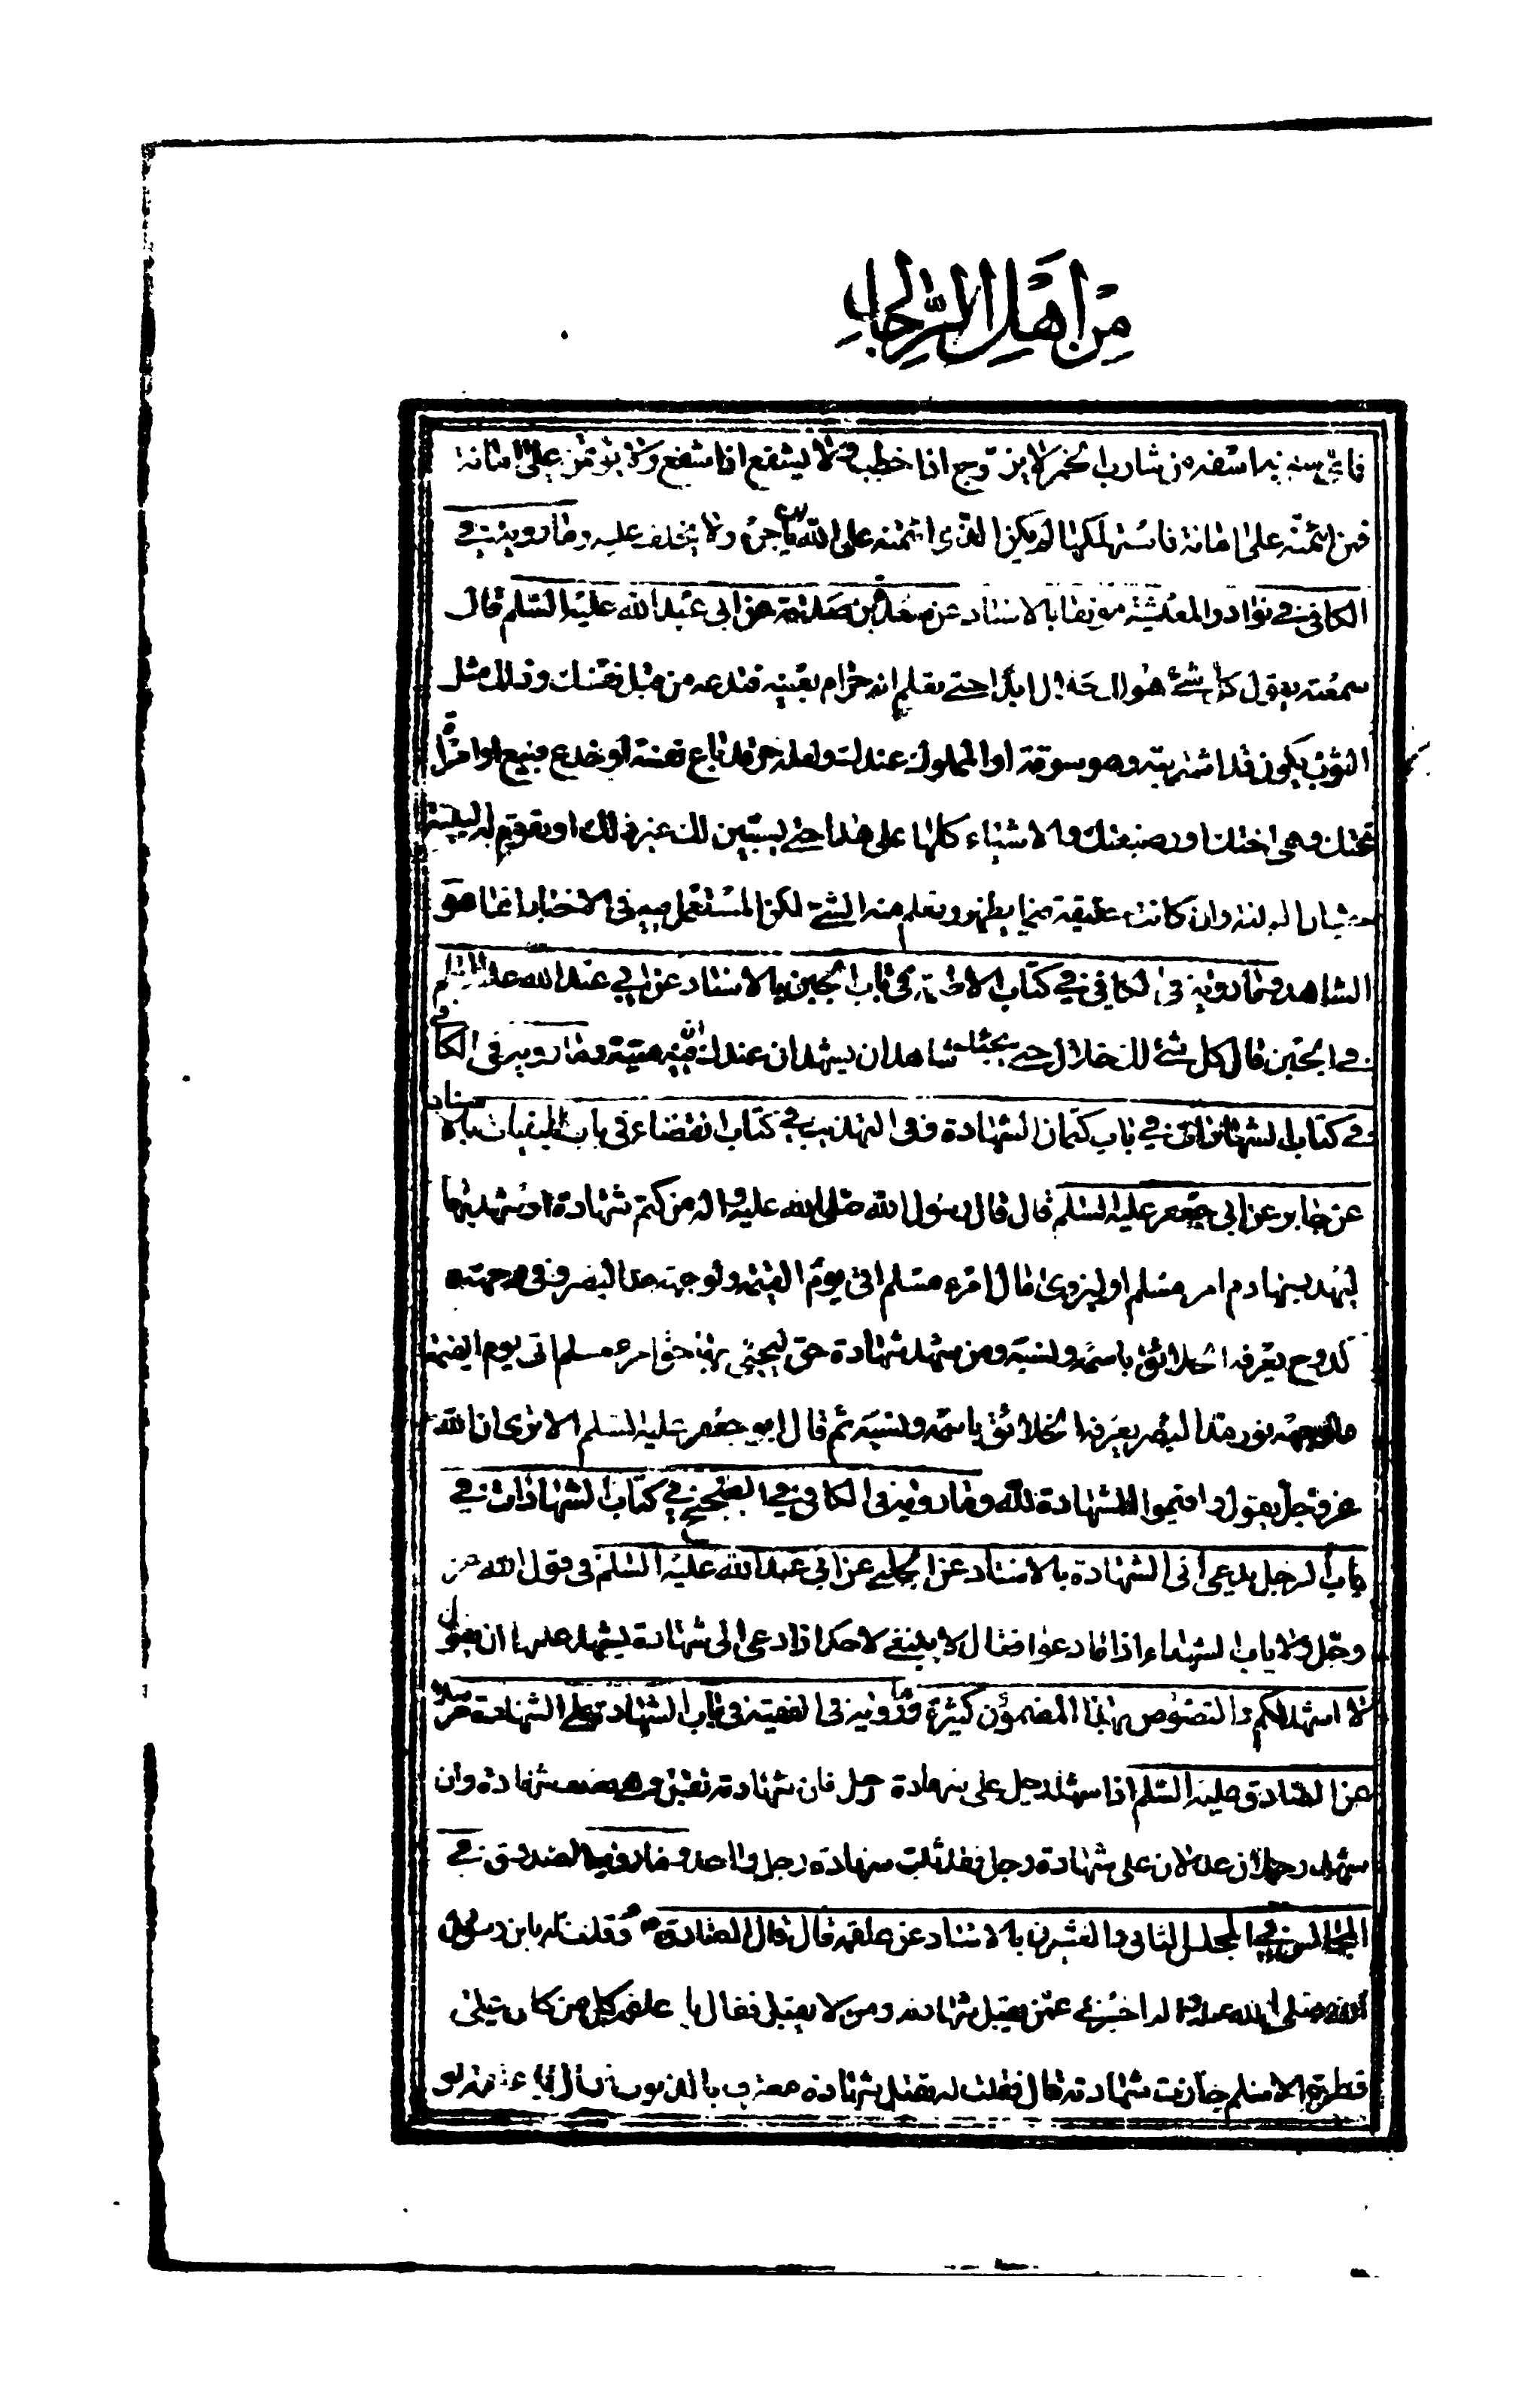 من اهل الرجال
فاي سفيه اسفه من شارب الخمر لا يزوج اذا خطب ولا يشفع اذا شفع ولا يؤتمن على امانة
فمن ائتمنه على امانة فاستهلكها لم يكن للذي ائتمنه على الله ان ياجره ولا يخلف عليه وما رويته في
الكافي في نوادر المعيشة موثقا بالاسناد عن مسعدة بن صدقة عن ابي عبد الله عليه السلم قال
سمعته يقول كل شئ هو لك حلال ابدا حتى تعلم انه حرام بعينه فتدعه من قبل نفسك وذلك مثل
الثوب يكون قد اشتريته وهو سرقة او المملوك عندك ولعله حر قد باع نفسه او خدع فبيع او امرأة
تحتك وهي اختك او رضيعتك والاشياء كلها على هذا حتى يستبين لك غير ذلك او تقوم به البينة
البينة وان كانت حقيقة فيما يظهر ويعلم منه الشئ لكن المستعمل فيه في الاخبار انما هو
الشاهد وما رويته في الكافي في كتاب الاطعمة في باب الجبن بالاسناد عن ابي عبد الله عليه السلم
في الجبن قال كل شئ لك حلال حتى يجيئك شاهدان يشهدان عندك ان فيه ميتة وما رويته في الكافي
في كتاب الشهادات في باب كتمان الشهادة وفي التهذيب في كتاب القضاء في باب البينات بالاسناد
عن جابر عن ابي جعفر عليه السلم قال قال رسول الله صلى الله عليه واله من كتم شهادة او شهد بها
ليهدر بها دم امرء مسلم او ليزوي مال امرء مسلم اتى يوم القيمة ولوجهه ظلمة مد البصر وفي وجهه
كدوح تعرفه الخلائق باسمه ونسبه ومن شهد شهادة حق ليحيي بها حق امرء مسلم اتى يوم القيمة
ولوجهه نور مد البصر يعرفه الخلائق باسمه ونسبه ثم قال ابو جعفر عليه السلم الا ترى ان الله
عز وجل يقول واقيموا الشهادة لله وما رويته في الكافي في الصحيح في كتاب الشهادات في
باب الرجل يدعى الى الشهادة بالاسناد عن الحلبي عن ابي عبد الله عليه السلم في قول الله عز
وجل ولا ياب الشهداء اذا ما دعوا فقال لا ينبغي لاحد اذا دعي الى شهادة يشهد عليها ان يقول
لا اشهد لكم والنصوص بهذا المضمون كثيرة وما رويته في الفقيه في باب الشهادة على الشهادة مرسلا
عن الصادق عليه السلم اذا شهد رجل على شهادة رجل فان شهادته تقبل وهي نصف شهادة وان
شهد رجلان عدلان على شهادة رجل فقد ثبت شهادة رجل واحد وما رويته الصدوق في
المجالس في المجلس الثاني والعشرين بالاسناد عن علقمة قال قال الصادق وقد قلت له يا بن رسول
الله صلى الله عليه واله اخبرني عمن تقبل شهادته ومن لا تقبل فقال يا علقمة كل من كان على
فطرة الاسلم جازت شهادته قال فقلت له تقبل شهادة مقترف بالذنوب فقال يا علقمة لو